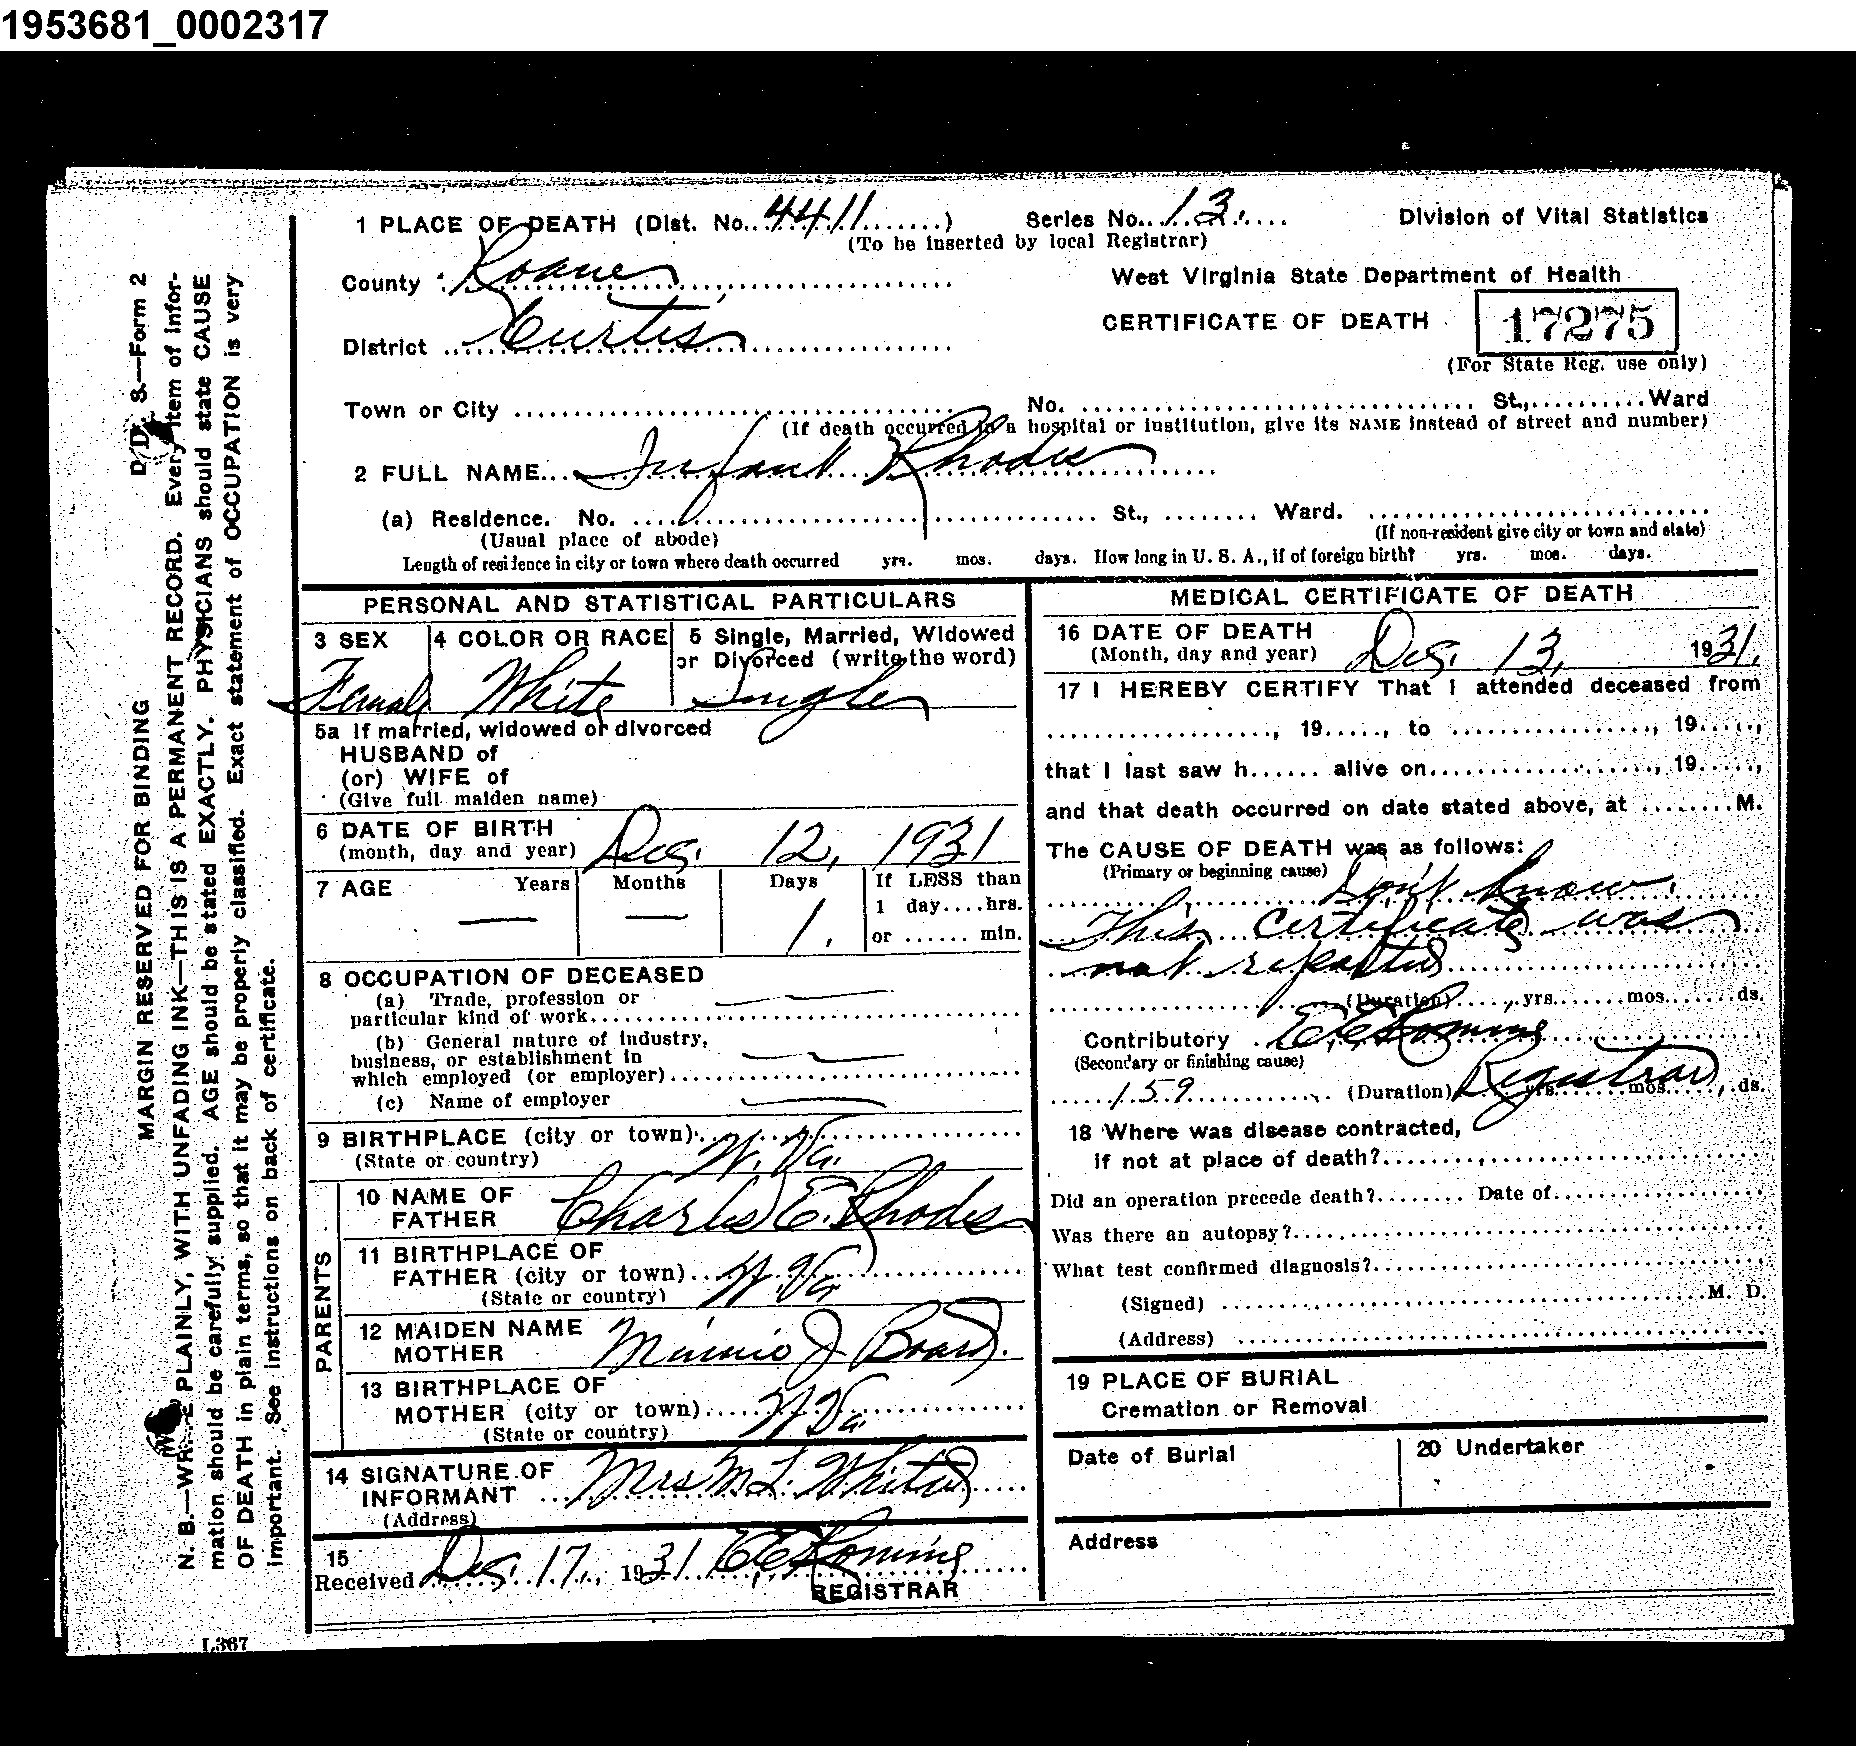 1953681_0002317
1 PLACE OF DEATH (Dist. No. 4411 ) Series No. 13. Division of Vital Statistics
(To be inserted by local Registrar)
County Roane West Virginia State Department of Health
District Curtis CERTIFICATE OF DEATH 17275
(For State Reg. use only)
Town or City No. St., Ward
(If death occurred in a hospital or institution, give its NAME instead of street and number)
2 FULL NAME Infant Rhodes
(a) Residence. No. St., Ward.
(Usual place of abode) (If non-resident give city or town and state)
Length of residence in city or town where death occurred yrs. mos. days. How long in U. S. A., if of foreign birth? yrs. mos. days.
PERSONAL AND STATISTICAL PARTICULARS
3 SEX 4 COLOR OR RACE 5 Single, Married, Widowed
or Divorced (write the word)
Female White Single
5a If married, widowed or divorced
HUSBAND of
(or) WIFE of
(Give full maiden name)
6 DATE OF BIRTH
(month, day and year) Dec. 12, 1931
7 AGE Years Months Days If LESS than
1 day....hrs.
— — 1. or ...... min.
8 OCCUPATION OF DECEASED
(a) Trade, profession or
particular kind of work
(b) General nature of industry,
business, or establishment in
which employed (or employer)
(c) Name of employer
9 BIRTHPLACE (city or town)
(State or country) W. Va.
PARENTS
10 NAME OF
FATHER Charles E. Rhodes
11 BIRTHPLACE OF
FATHER (city or town) W. Va
(State or country)
12 MAIDEN NAME
MOTHER Minnie J Board.
13 BIRTHPLACE OF
MOTHER (city or town) W Va.
(State or country)
14 SIGNATURE OF
INFORMANT Mrs M. L. Whited
(Address)
15
Received Dec. 17, 1931
REGISTRAR
MEDICAL CERTIFICATE OF DEATH
16 DATE OF DEATH
(Month, day and year) Dec. 13, 1931.
17 I HEREBY CERTIFY That I attended deceased from
, 19....., to , 19.....,
that I last saw h...... alive on , 19.....,
and that death occurred on date stated above, at M.
The CAUSE OF DEATH was as follows:
(Primary or beginning cause) Don't know.
This certificate was
not reported
(Duration) yrs. mos. ds.
Contributory
(Secondary or finishing cause)
159 (Duration) Registrar yrs. mos. ds.
18 Where was disease contracted,
if not at place of death?
Did an operation precede death? Date of
Was there an autopsy?
What test confirmed diagnosis?
(Signed) M. D.
(Address)
19 PLACE OF BURIAL
Cremation or Removal
Date of Burial 20 Undertaker
Address
D. D. S.—Form 2
MARGIN RESERVED FOR BINDING
N. B.—WRITE PLAINLY, WITH UNFADING INK—THIS IS A PERMANENT RECORD. Every item of infor-
mation should be carefully supplied. AGE should be stated EXACTLY. PHYSICIANS should state CAUSE
OF DEATH in plain terms, so that it may be properly classified. Exact statement of OCCUPATION is very
important. See instructions on back of certificate.
L367